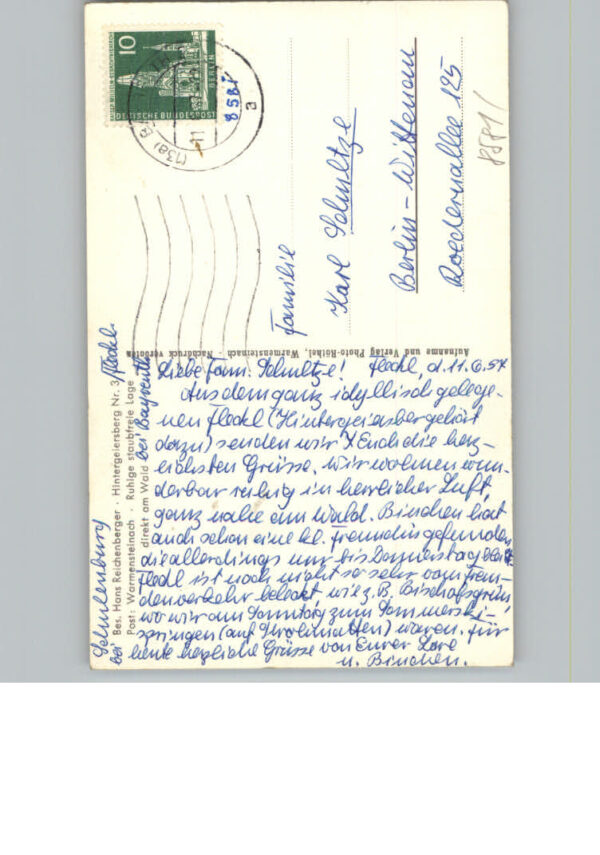 10
BERLIN
DEUTSCHE BUNDESPOST
(13a)
11
8581
a
Familie
Karl Schultze
Berlin-Wittenau
Roedernallee 125
8581/
Aufnahme und Verlag Photo-Röthel, Warmensteinach · Nachdruck verboten
Schulenburg
bei Bes. Hans Reichenberger · Hintergeiersberg Nr. 3/Fleckl
Post: Warmensteinach · Ruhige staubfreie Lage
direkt am Wald bei Bayreuth
Liebe Fam. Schultze! Fleckl, d. 11.6.57
Aus dem ganz idyllisch gelege-
nen Fleckl (Hintergeiersberg gehört
dazu) senden wir Euch die herz-
lichsten Grüsse. Wir wohnen wun-
derbar ruhig in herrlicher Luft,
ganz nahe am Wald. Binchen hat
auch schon eine kl. Freundin gefunden,
die allerdings nur bis Donnerstag
Fleckl ist noch nicht so sehr vom Frem-
denverkehr beleckt wie z. B. Bischofsgrün,
wo wir am Sonntag zum Sommerski-
springen (auf Strohmatten) waren. Für
heute herzliche Grüsse von Eurer Lore
u. Binchen.